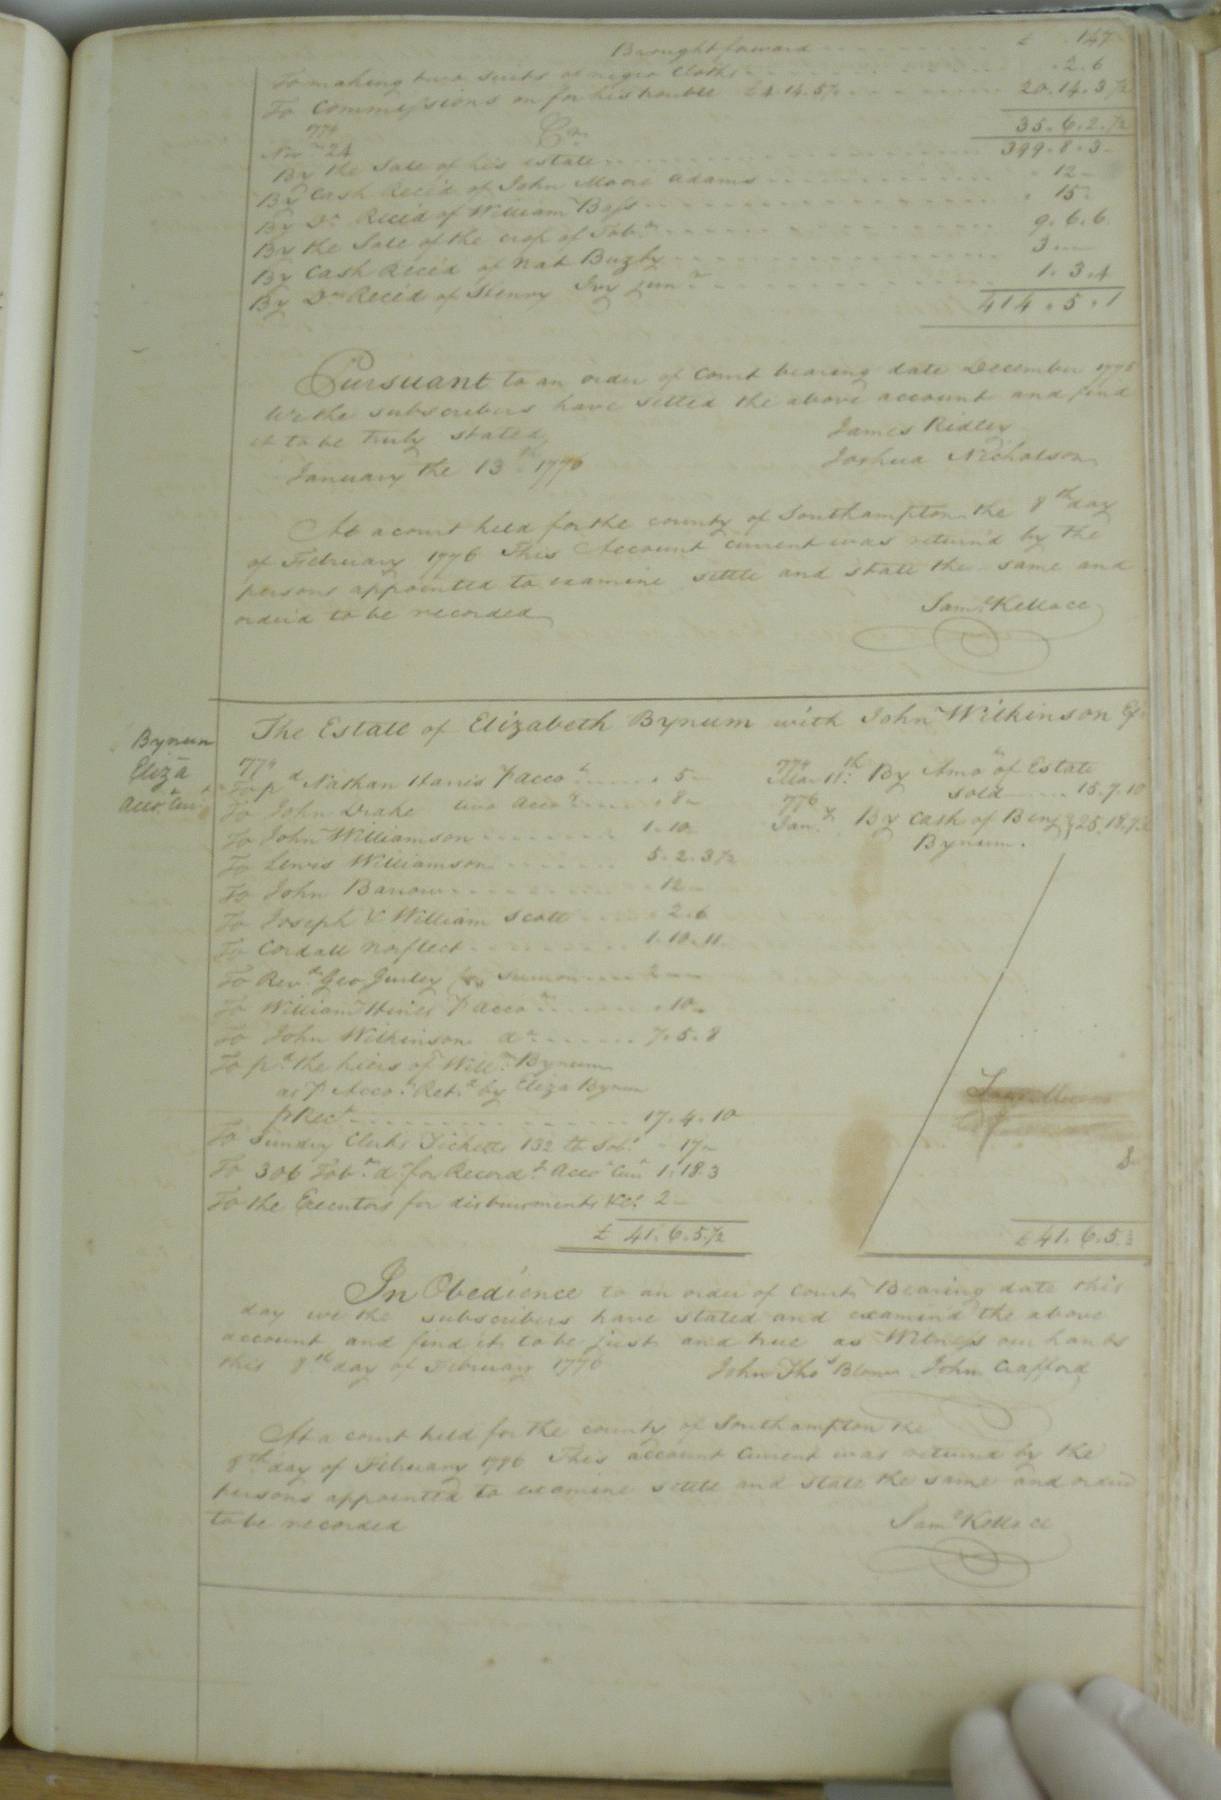 Brought forward £ 147
To making two suits of negro Cloths .2.6
To Commissions on for his trouble £4.14.5½ 20.14.3½
35.6.2½
1774 Cr.
Novr 24 399.8.3
By the Sale of his estate
By Cash Reced of John Moore Adams 12
By Do Reced of William Bass 15
By the Sale of the crop of Tobo 9.6.6
By Cash Reced of Nat Buzby 3
By Do Reced of Henry Ivy junr 1.3.4
414.5.1
Pursuant to an order of Court bearing date December 1775
We the subscribers have setled the above account and find
it to be truly stated
James Ridley
January the 13th 1776 Joshua Nicholson
At a court held for the county of Southampton the 8th day
of February 1776 This Account current was return'd by the
persons appointed to examine settle and state the same and
order'd to be recorded
Saml Kello cc
The Estate of Elizabeth Bynum with John Wilkinson Ex
Bynum
Eliza
Acco. Curt
1774
To pd Nathan Harris p acco 5
To John Drake two Accots 8
To John Williamson 1.10
To Lewis Williamson 5.2.3½
To John Barrow 12
To Joseph & William Scott 2.6
To Cordall Norfleet 1.10.11
To Revd Geo Gurley for Sermon 2
To William Hines p acco 10
To John Wilkinson do 7.5.8
To pd the hiers of Willm Bynum
as p Acco. Retd by Eliza Bynum
p Rect 17.4.10
To Sundry Clerks Ticketts 132 tb Tobo 17
To 306 Tobo do for Record Acco Curt 1.18.3
To the Executors for disbursments &c 2
£ 41.6.5½
1774
Mar 11th By Amot of Estate
sold 15.7.10
1776
Jany By Cash of Benj 25.18.7½
Bynum.
£41.6.5½
In Obedience to an order of Court Bearing date this
day we the subscribers have stated and examin'd the above
account and find it to be just and true as Witness our hands
this 8th day of February 1776 John Thos Blow John Crafford
At a court held for the county of Southampton the
8th day of February 1776 This account Current was returnd by the
persons appointed to examine settle and state the same and orderd
to be recorded
Saml Kello cc